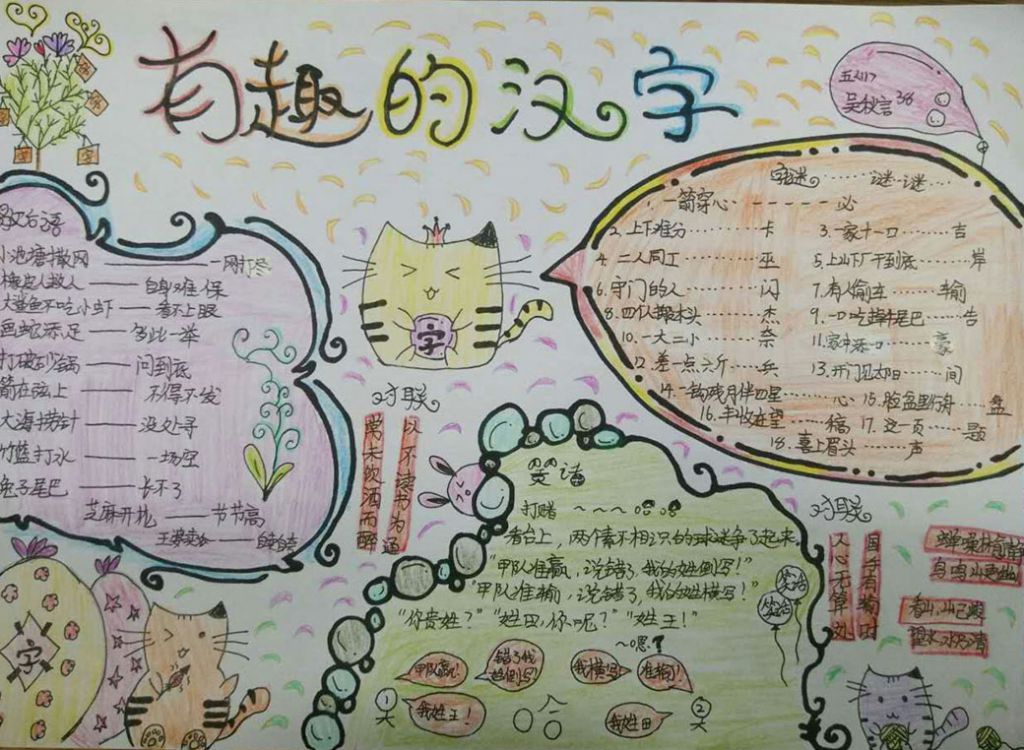 有趣的汉字
五(1)
38
歇后语
小池塘撒网——一网打尽
橡皮人救人——自身难保
大鲨鱼不吃小虾——看不上眼
画蛇添足——多此一举
打破沙锅——问到底
箭在弦上——不得不发
大海捞针——没处寻
竹篮打水——一场空
兔子尾巴——长不了
芝麻开花——节节高
王婆卖瓜——自卖自夸
字
字迷……谜一谜……
1. 一箭穿心------必
2. 上下难分……卡
3. 一家十一口……吉
4. 二人同工……巫
5. 上山下厂干到底……岸
6. 守门的人……闪
7. 有人偷车……输
8. 四个撑木头……杰
9. 一口吃掉牛尾巴……告
10. 一大二小……奈
11. 家中添一口……豪
12. 差一点六斤……兵
13. 开门见太阳……间
14. 一勾残月伴四星……心
15. 脸盆里行舟……盘
16. 丰收在望……稿
17. 这一页……题
18. 喜上眉头……声
对联
以不读书为通
常未饮酒而醉
笑话
打赌~~~
"看台上，两个素不相识的球迷争了起来
"甲队准赢，说错了，我的姓倒写！"
"甲队准输，说错了，我的姓横写！"
"你贵姓？""姓田，你呢？""姓王！"
甲队赢！
错了我姓倒写！
我横写
准输！
①
我姓王！
哈
我姓田
②
笑话
笑话
对联
国手有输时
人心无算处
蝉噪林愈静
鸟鸣山更幽
字